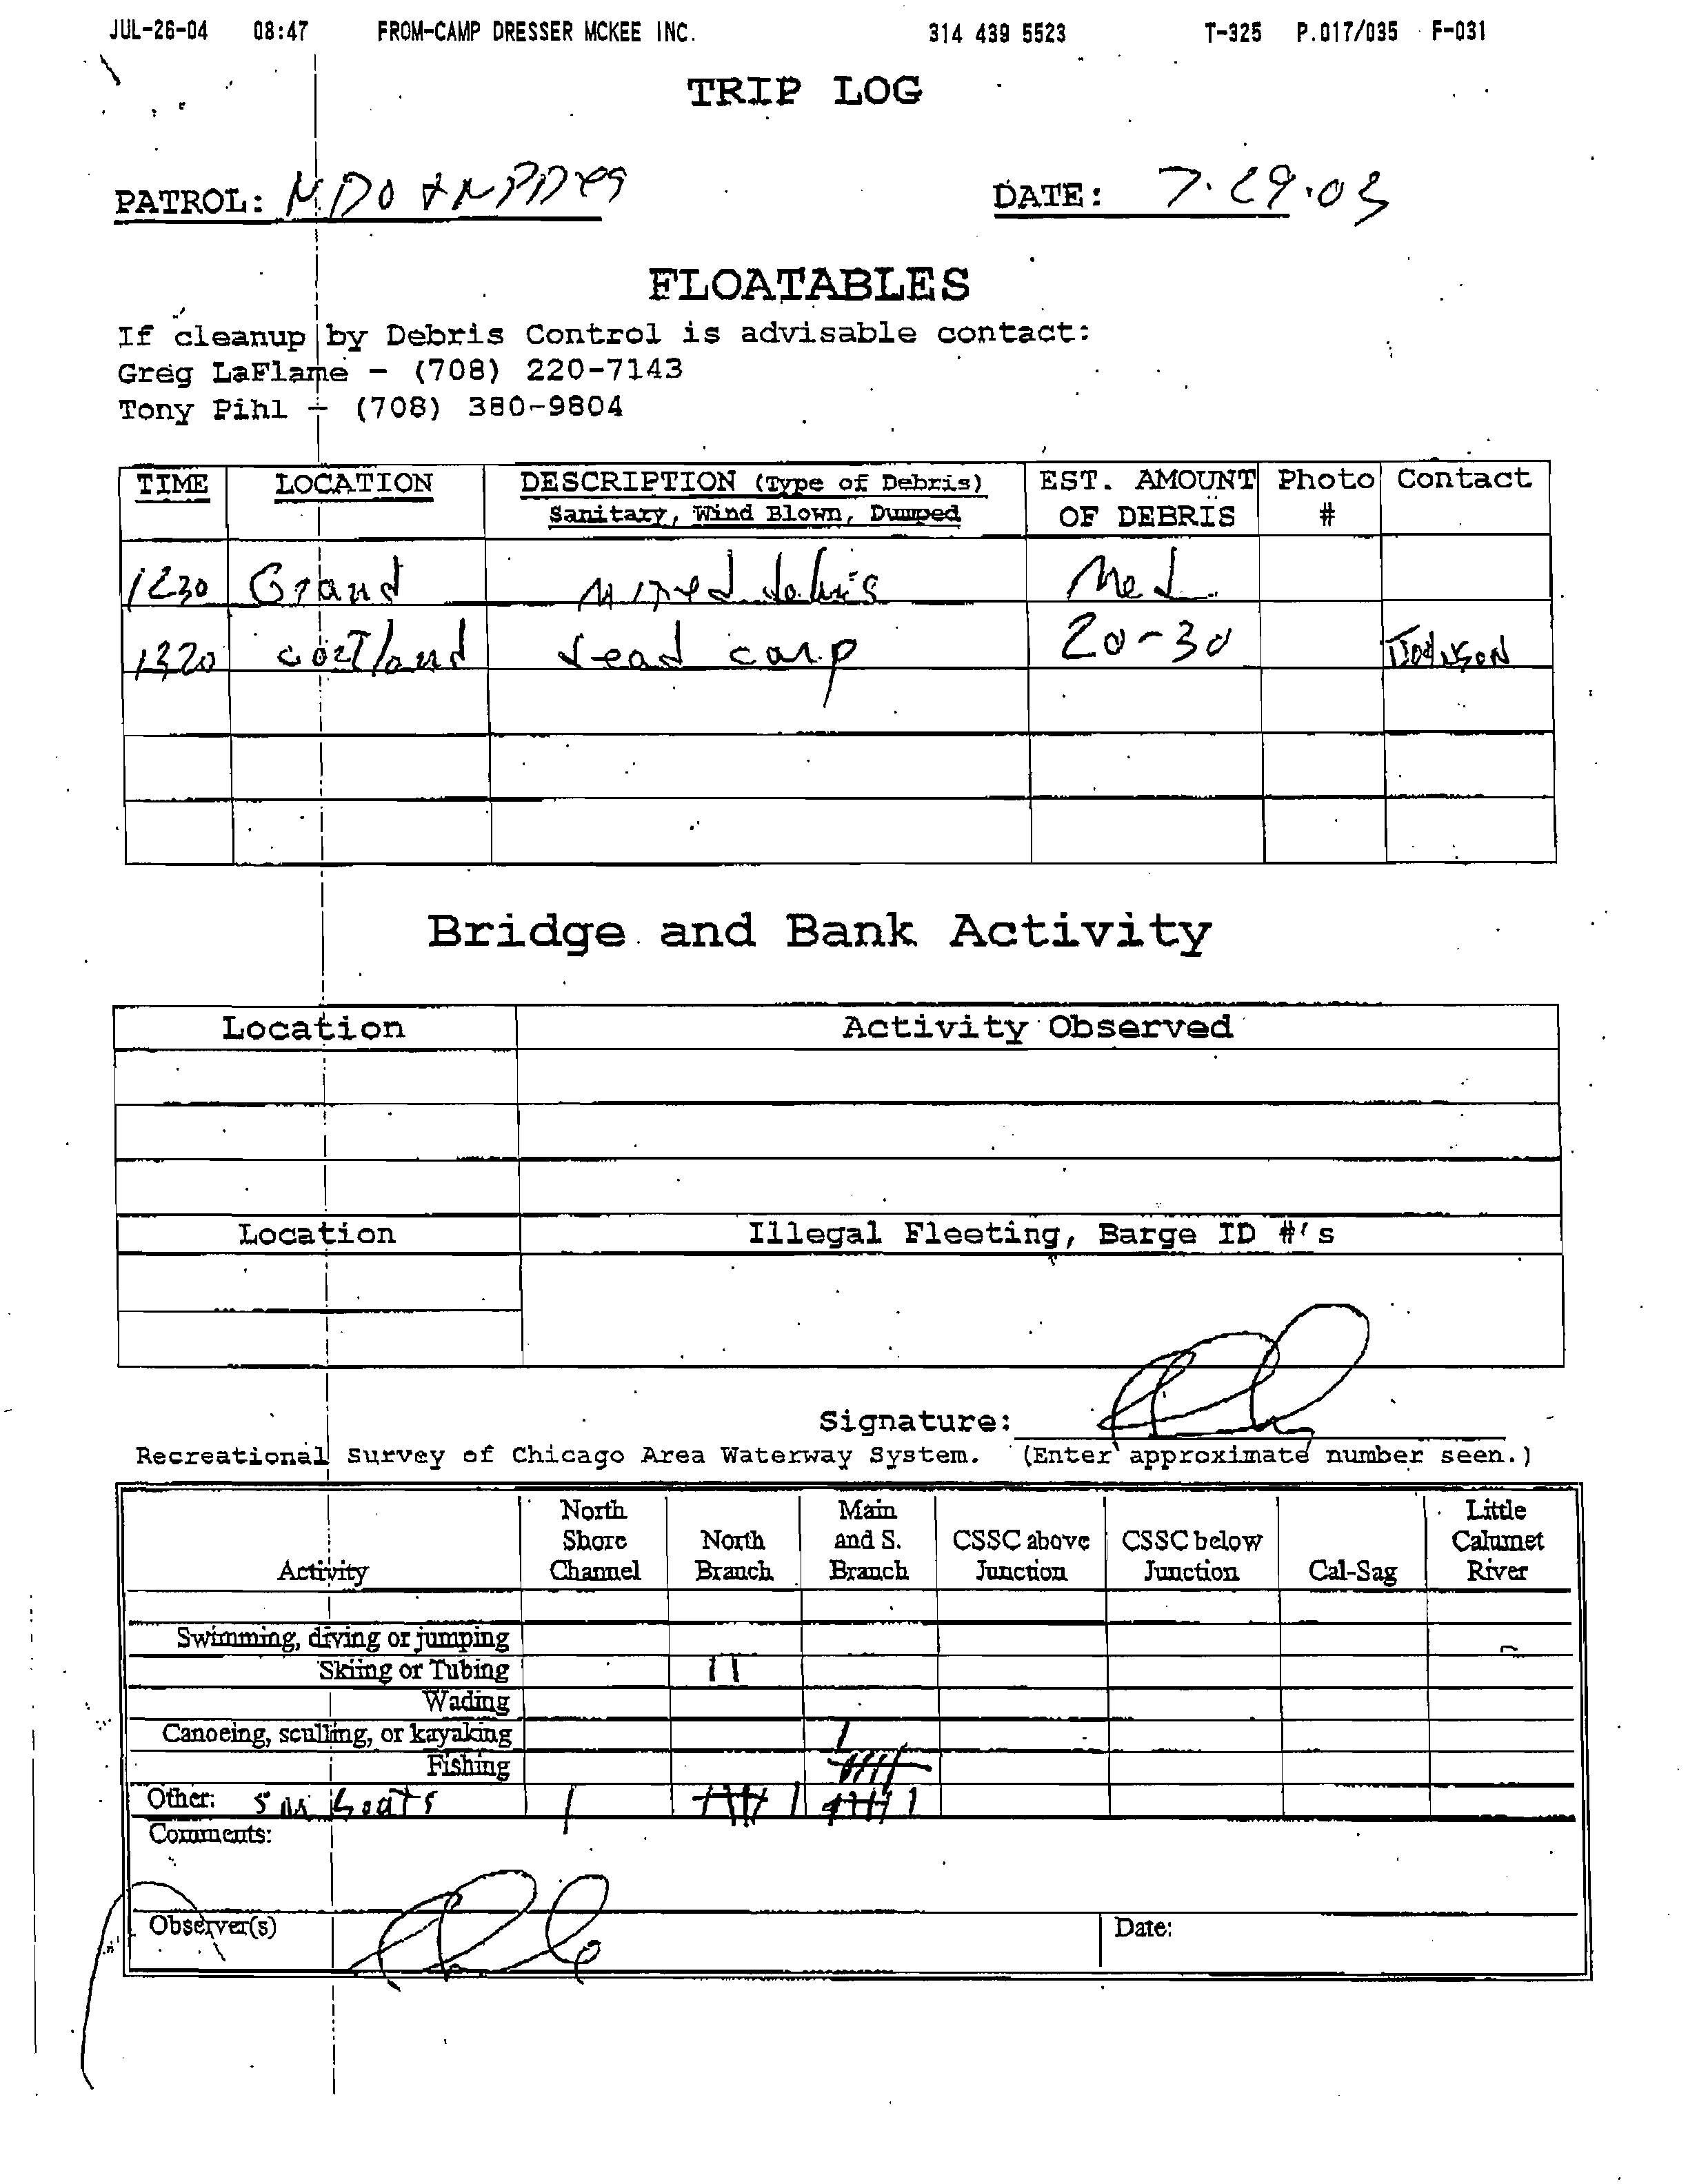 JUL-26-04 08:47 FROM-CAMP DRESSER MCKEE INC. 314 439 5523 T-325 P.017/035 F-031
TRIP LOG
PATROL: DATE: 7.29.03
FLOATABLES
If cleanup by Debris Control is advisable contact:
Greg LaFlame - (708) 220-7143
Tony Pihl - (708) 380-9804
TIME LOCATION DESCRIPTION (Type of Debris) EST. AMOUNT Photo Contact
Sanitary, Wind Blown, Dumped OF DEBRIS #
1230 Grand mixed debris Med
1320 cortland dead carp 20-30 JOHNSON
Bridge and Bank Activity
Location Activity Observed
Location Illegal Fleeting, Barge ID #'s
Signature:
Recreational Survey of Chicago Area Waterway System. (Enter approximate number seen.)
North Main Little
Shore North and S. CSSC above CSSC below Calumet
Activity Channel Branch Branch Junction Junction Cal-Sag River
Swimming, diving or jumping
Skiing or Tubing 11
Wading
Canoeing, sculling, or kayaking
Fishing
Other: sm boats
Comments:
Observer(s) Date: